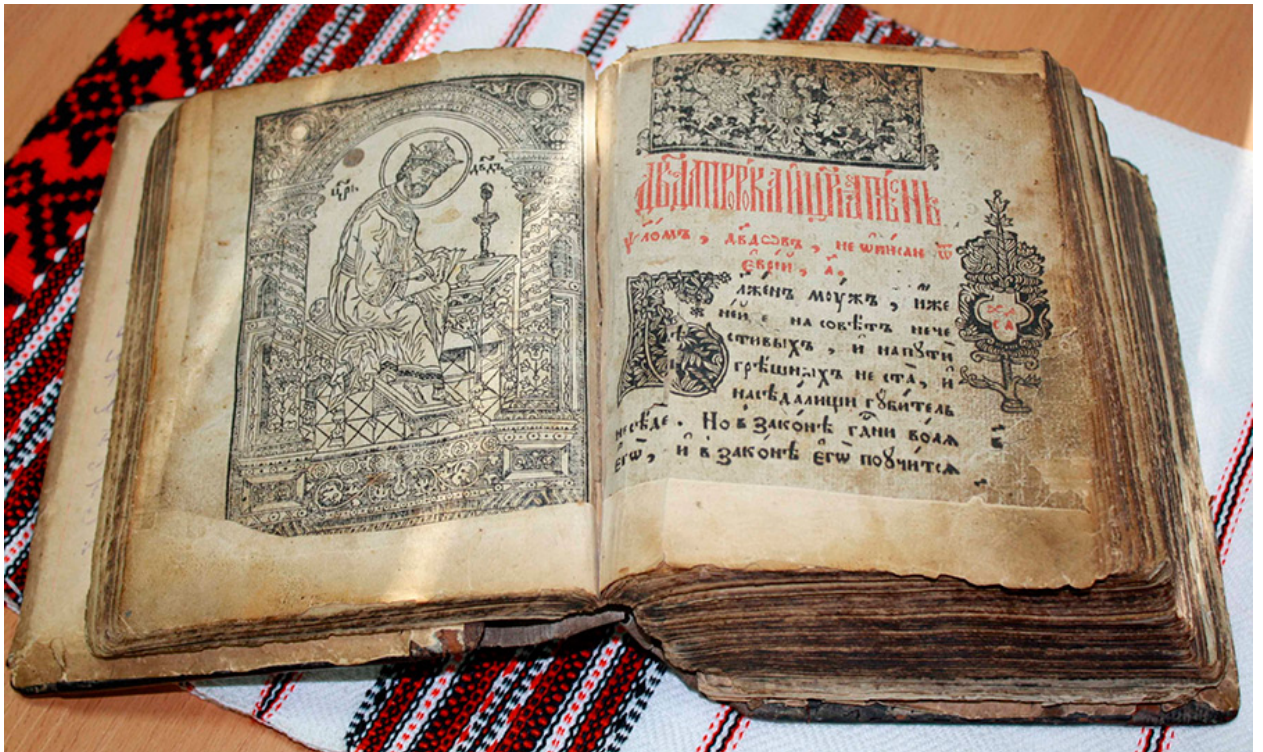 цр҃ь
дв҃дъ
Дв҃да прⷪ҇рока и цр҃ѧ пѣснь
ѱало́мъ , дв҃довъ , не ѡ҆писан ѿ
є҆врє́й , а҃ .
Бл҃же́нъ мо́ужъ , и҆же
не и́де на совѣ́тъ нече
сти́выхъ , и҆ на пꙋтѝ
грѣ́шныхъ не ста̀ , и҆
на сѣда́лищи гꙋби́тель
не сѣ́де . Но в зако́нѣ гдⷭ҇ни во́лѧ
є҆гѡ̀ , и҆ в зако́нѣ є҆гѡ̀ поꙋчи́тсѧ